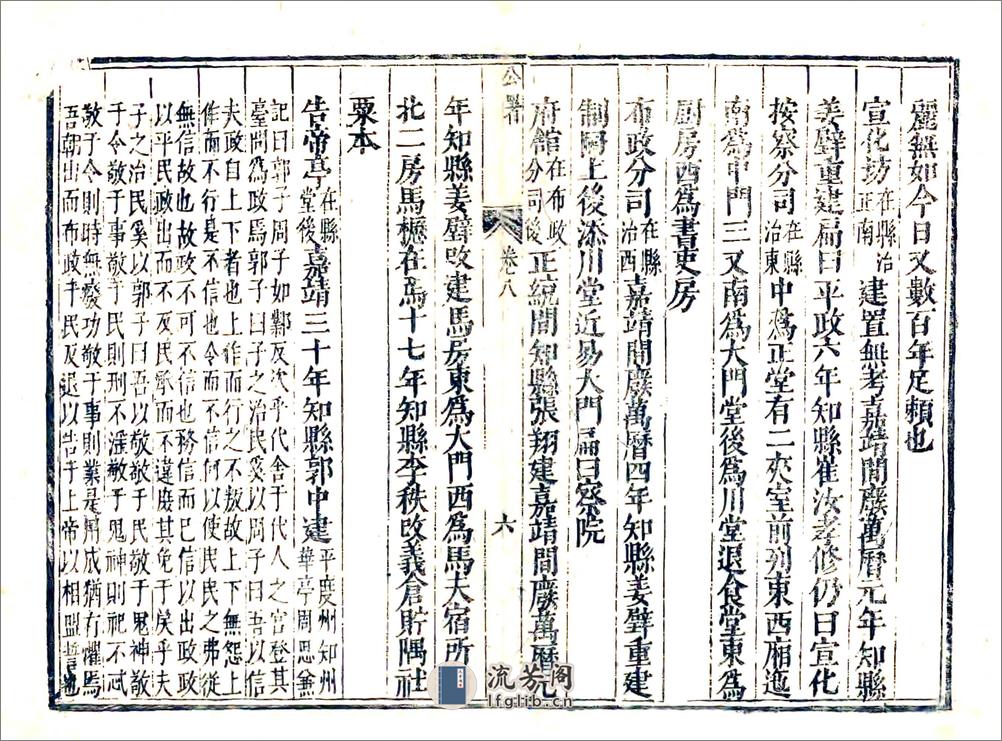 麗無如今日又數百年足賴也
宣化坊在縣治正南建置無考嘉靖間廢萬曆元年知縣
姜璧重建扁曰平政六年知縣崔汝孝修仍曰宣化
按察分司在縣治東中為正堂有二夾室前列東西廂迤
南為中門三又南為大門堂後為川堂退食堂東為
厨房西為書吏房
布政分司在縣治西嘉靖間廢萬曆四年知縣姜璧重建
制同上後添川堂近易大門扁曰察院
府館在布政分司後正統間知縣張翔建嘉靖間廢萬曆元
公署
卷八
六
年知縣姜璧改建馬房東為大門西為馬夫宿所
北二房馬櫪在焉十七年知縣李秩改義倉貯隅社
粟本
告帝亭在縣堂後嘉靖三十年知縣郭中建平度州知州華亭周思兼
記曰郭子周子如酆反次乎代舍于代人之宮登其
臺問為政焉郭子曰子之治民奚以周子曰吾以信
夫政自上下者也上作而行之不叛故上下無怨上
作而下不行是不信也令而不信何以使民民之弗從
無信故也故政不可不信也務信而已信以出政政
以平民政出而不反民承而不違庶其免于戾乎夫
子之治民奚以郭子曰吾以敬敬于民敬于鬼神敬
于令敬于事敬于民則刑不濫敬于鬼神則祀不忒
敬于令則時無廢功敬于事則業是用成猶有懼焉
吾朝出而布政于民反退以告于上帝以相盟誓也
流芳阁
lfglib.cn